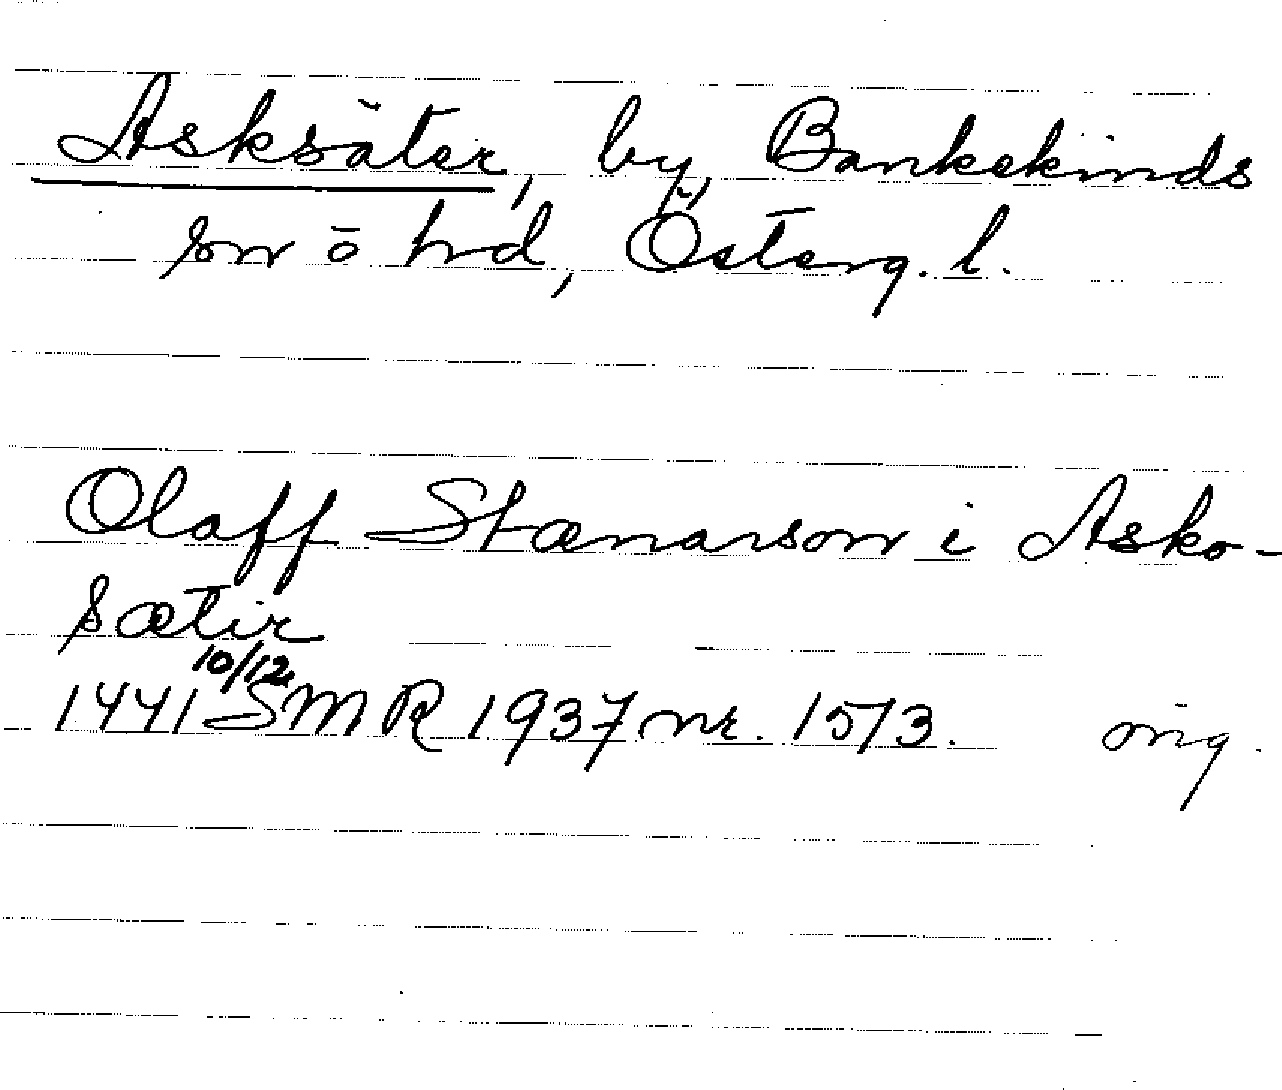 Asksäter, by, Bankekinds
sn o hd, Österg. l.
Olaff Stænarson i Asko-
sætir
10/12
1441 SMR 1937 nr. 1573. orig.